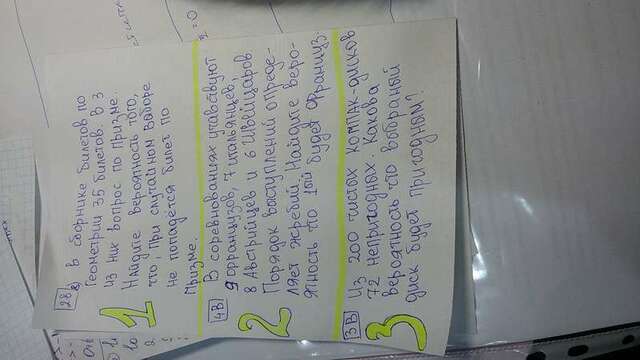 2В
1
В сборнике билетов по
геометрии 35 билетов. В 3
из них вопрос по призме.
Найдите вероятность того,
что, при случайном выборе
не попадётся билет по
призме.
4В
2
В соревнованиях учавствуют
9 французов, 7 итальянцев,
8 Австрийцев и 6 Швейцаров
Порядок выступлений опреде-
ляет жребий. Найдите веро-
ятность что 1ый будет Француз.
3В
3
Из 200 чистых компак-дисков
72 непригодных. Какова
вероятность что выбраный
диск будет пригодным?